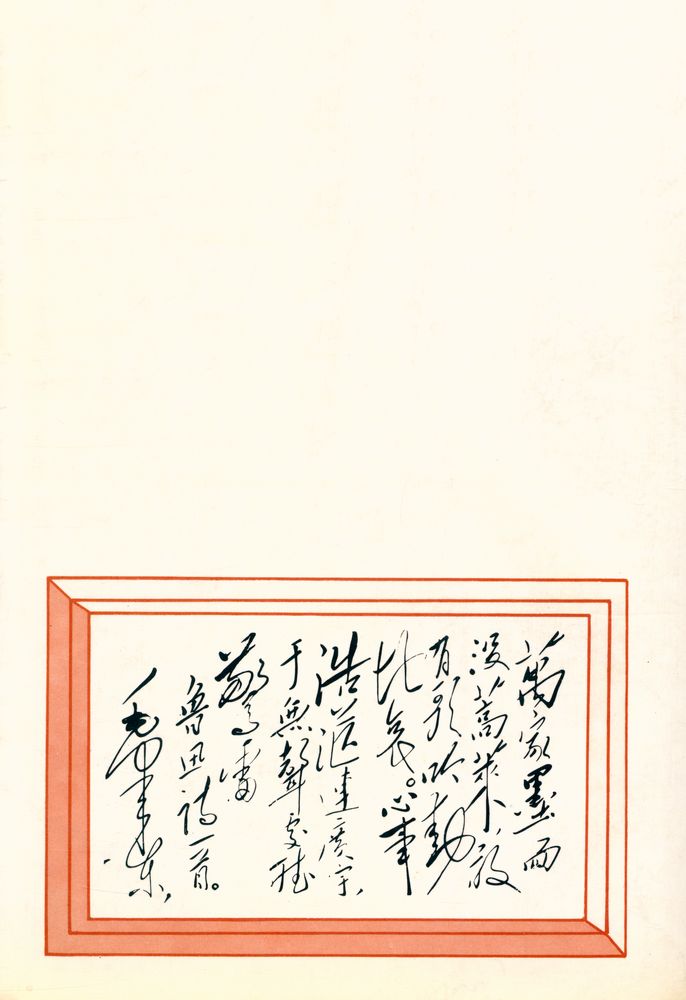 萬家墨面
沒蒿萊，敢
有歌吟動
地哀。心事
浩茫連廣宇，
于無聲處聽
驚雷
魯迅詩一首。
毛澤東